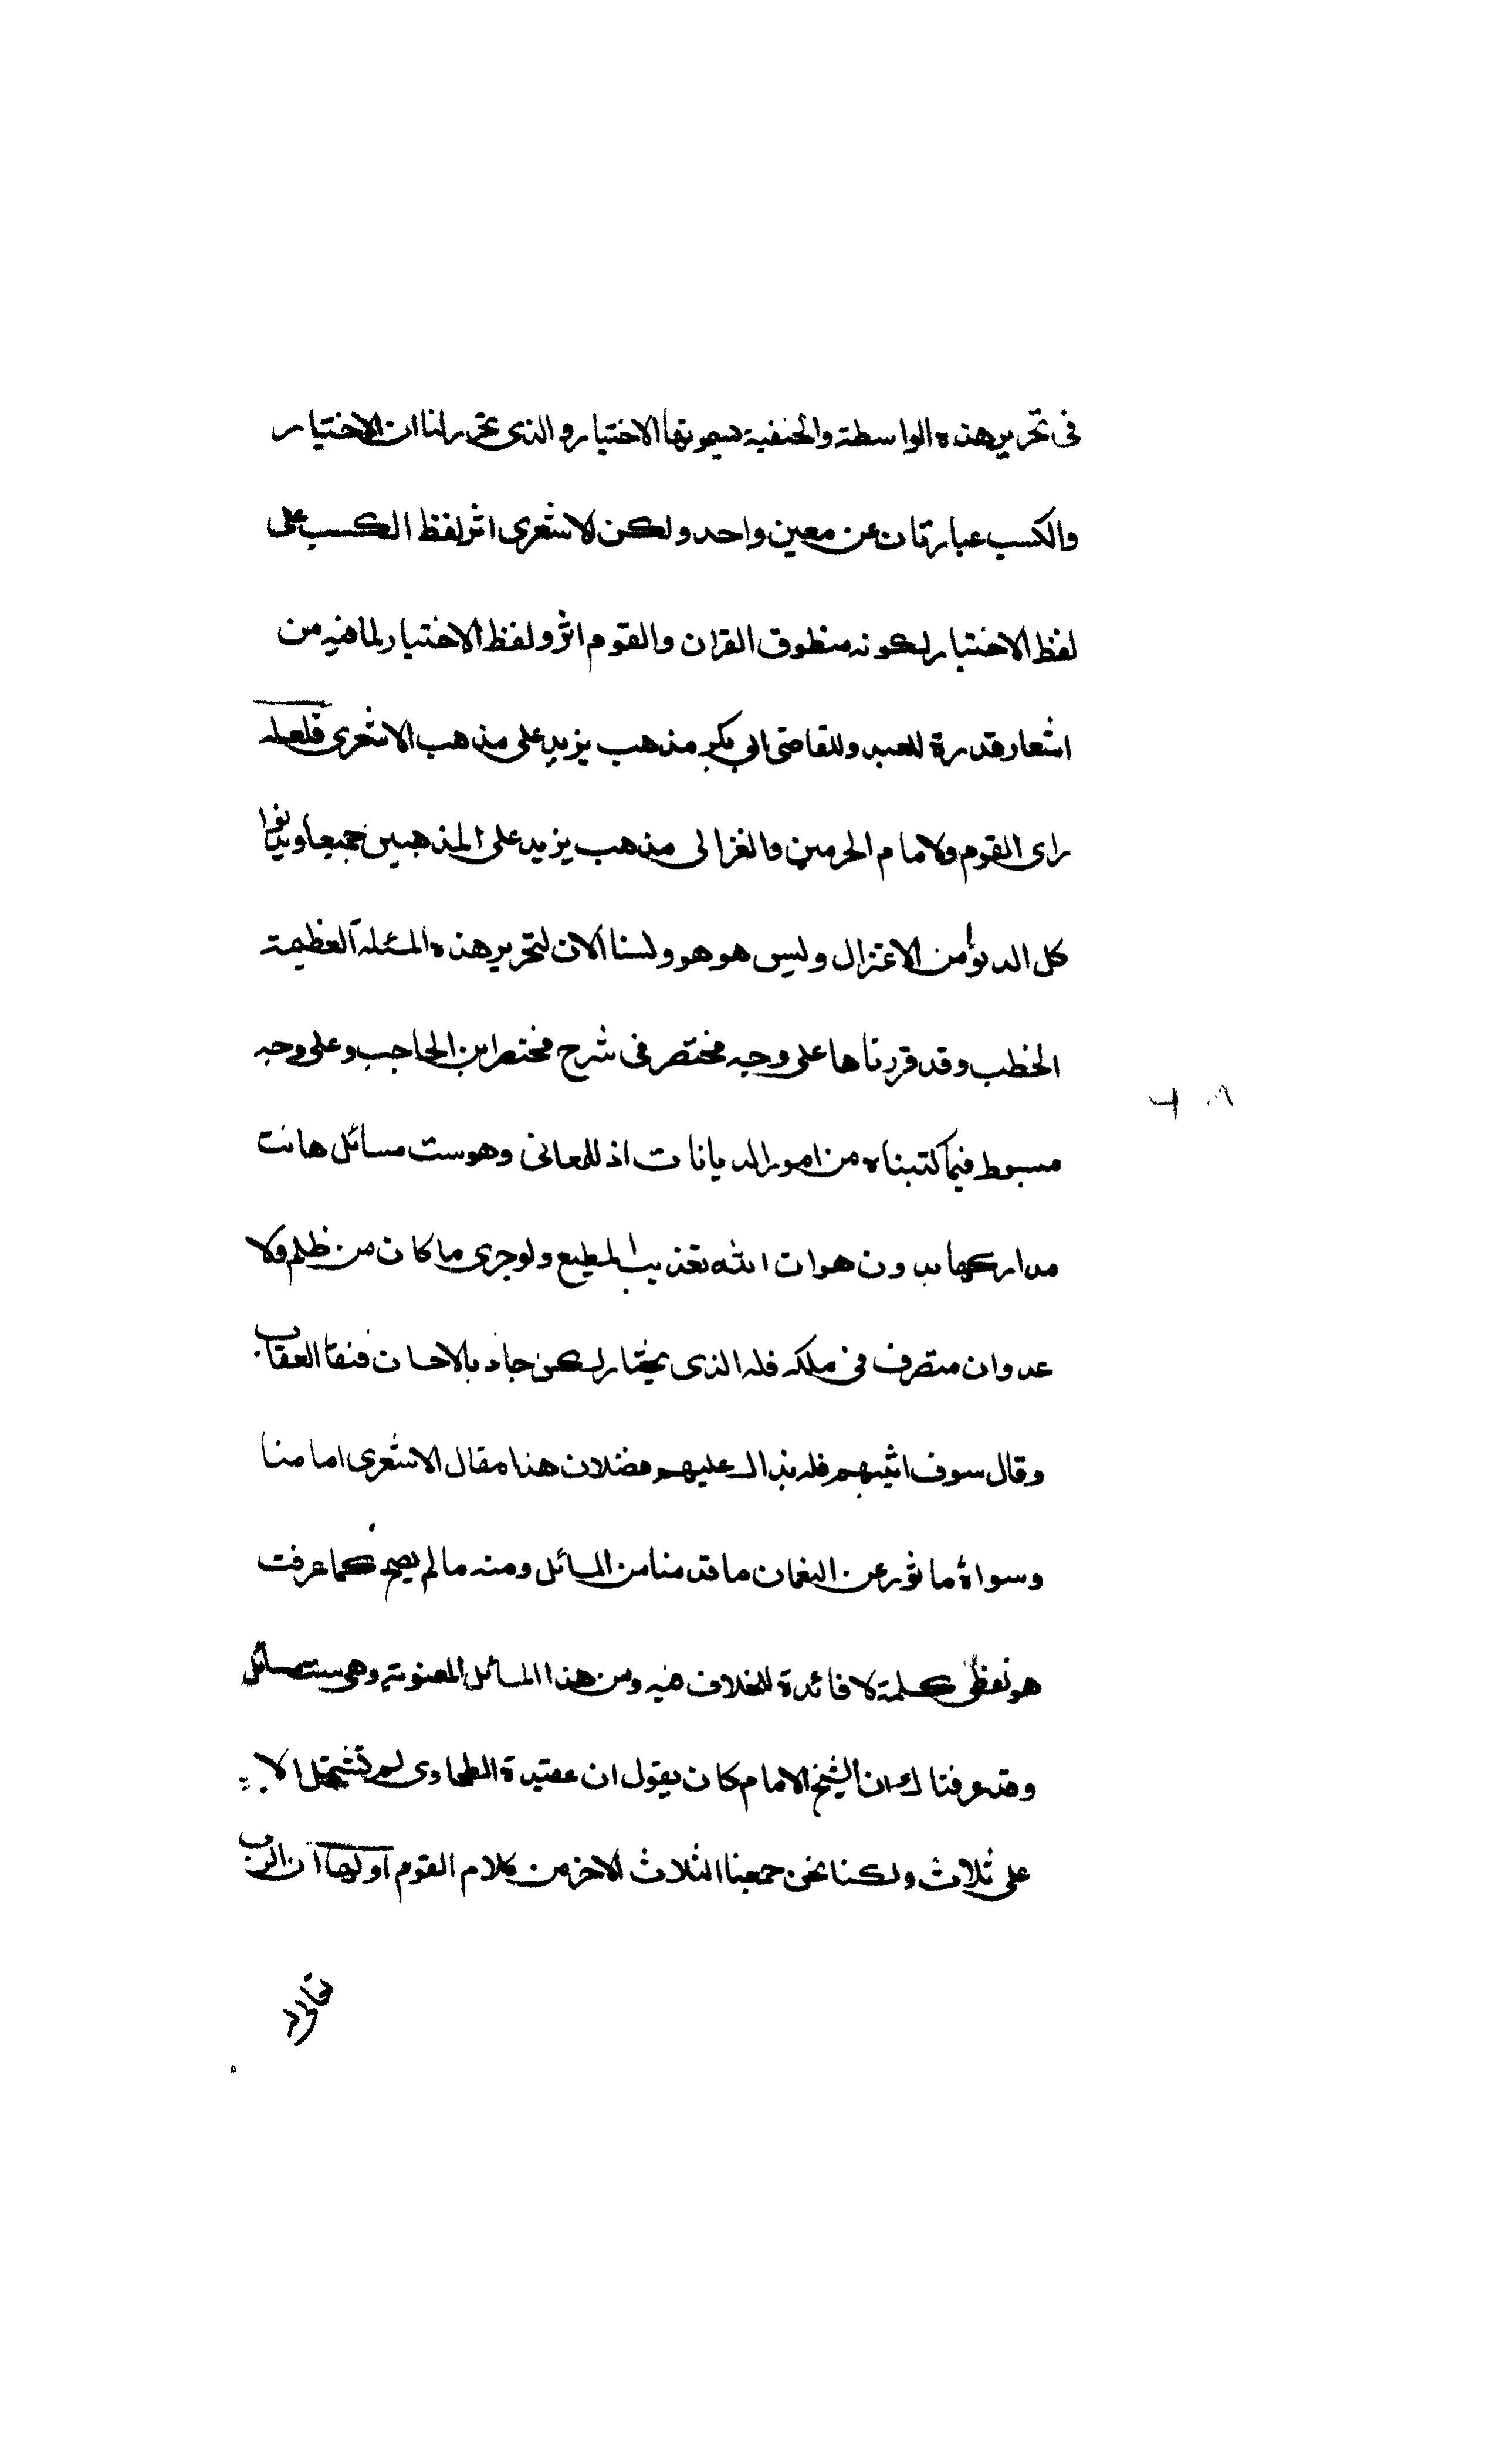 فى تحرير هذه الواسطة والحنفية يسمونها الاختيار والذى تحرر لنا ان الاختيار
والكسب عبارتان عن معين واحد ولكن لاشعرى اثر لفظ الكسب على
لفظ الاختيار لكونه منطوق القران والقوم اثروا لفظ الاختيار لما فيه من
اشعار قدرة للعبد وللقاضى ابى بكر مذهب يزيد على مذهب الاشعرى فلعله
راى القوم ولامام الحرمين والغزالى مذهب يزيد على المذهبين جميعا ويدنوا
كل الدنو من الاعتزال وليس هو هو ولسنا الان لتحرير هذه المسئلة العظيمة
الخطب وقد قررناها على وجه مختصر فى شرح مختصر ابن الحاجب وعلى وجه
مبسوط فيما كتبناه من امور الديانات اذ للمعانى وهو ست مسائل هانت
مداركها بدون هوات الله تعذيب المطيع ولو جرى ما كان من ظلم ولا
عدوان متصرف فى ملكه فله الذى يختار لكن جاد بالاحسان فنفا العقاب
وقال سوف اثيبهم فله بذاك عليهم فضلان هذا مقال الاشعرى امامنا
وسواه ما ثور عن النعمان ما قدمنا من المسائل ومنه ما لم يصح كما عرفت
هو لفظى كلمة لا فائدة للخلاف فيه ومن هذا المسائل المعنوية وهى ست مسائل
وقد عرفناك ان الشيخ الامام كان يقول ان عقيدة الطحاوى لم تشتمل الا
على ثلاث ولكنا نحن جمعنا الثلاث الاخر من كلام القوم اولها ان الرب